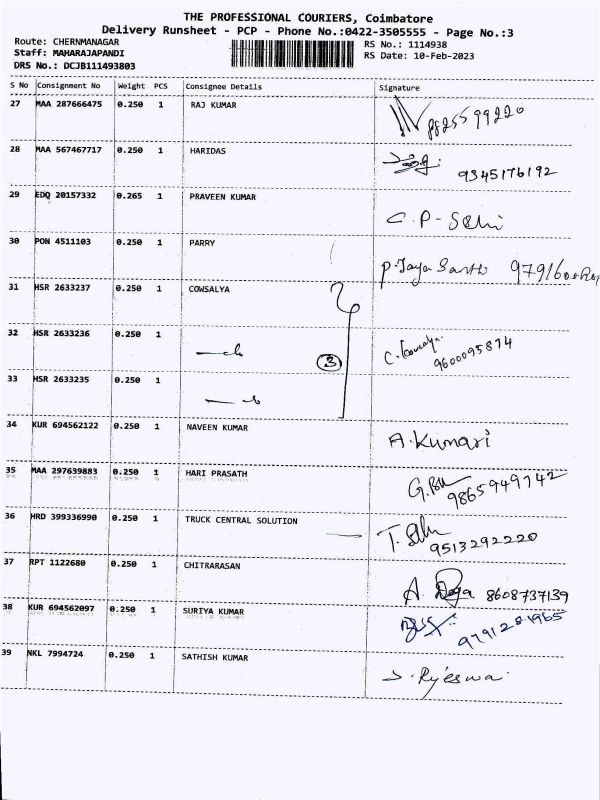 THE PROFESSIONAL COURIERS, Coimbatore
Delivery Runsheet - PCP - Phone No.:0422-3505555 - Page No.:3
Route: CHERNMANAGAR RS No.: 1114938
Staff: MAHARAJAPANDI RS Date: 10-Feb-2023
DRS No.: DCJB111493803
S No Consignment No Weight PCS Consignee Details Signature
27 MAA 287666475 0.250 1 RAJ KUMAR
28 MAA 567467717 0.250 1 HARIDAS
9345176192
29 EDQ 20157332 0.265 1 PRAVEEN KUMAR
C.P-Selvi
30 PON 4511103 0.250 1 PARRY
P.Jaya Santhi
31 HSR 2633237 0.250 1 COWSALYA
32 HSR 2633236 0.250 1
3
9600095874
33 HSR 2633235 0.250 1
34 KUR 694562122 0.250 1 NAVEEN KUMAR
A.Kumari
35 MAA 297639883 0.250 1 HARI PRASATH
9865949742
36 HRD 399336990 0.250 1 TRUCK CENTRAL SOLUTION
9513292220
37 RPT 1122680 0.250 1 CHITRARASAN
8608737139
38 KUR 694562097 0.250 1 SURIYA KUMAR
9791281965
39 NKL 7994724 0.250 1 SATHISH KUMAR